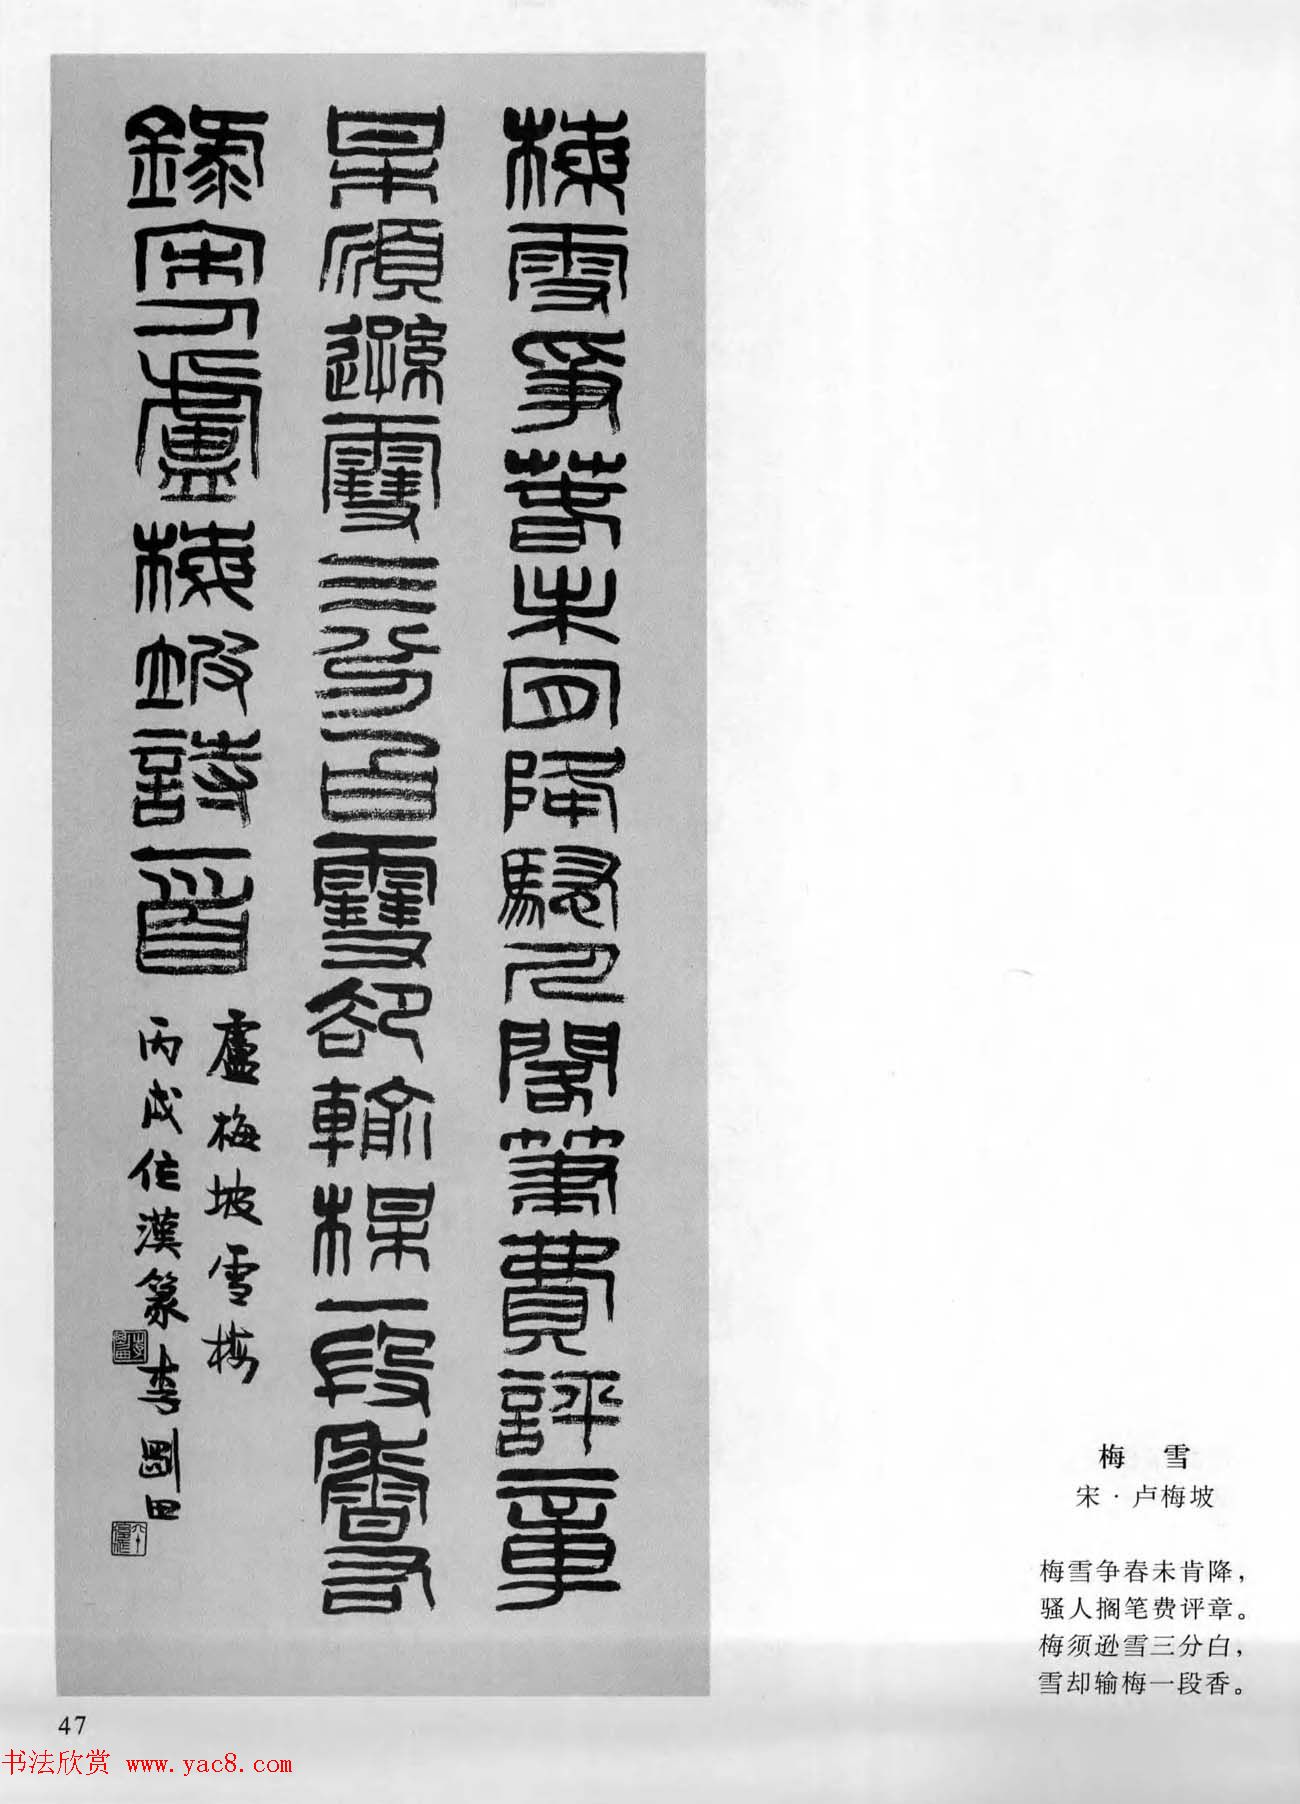 梅雪爭春未肯降騷人閣筆費評章
呆須遜雪三分白雪卻輸楳一段香右
錄宋盧梅坡詩一首
盧梅坡雪梅
丙戌作漢篆李剛田
梅 雪
宋·卢梅坡
梅雪争春未肯降，
骚人搁笔费评章。
梅须逊雪三分白，
雪却输梅一段香。
47
书法欣赏 www.yac8.com